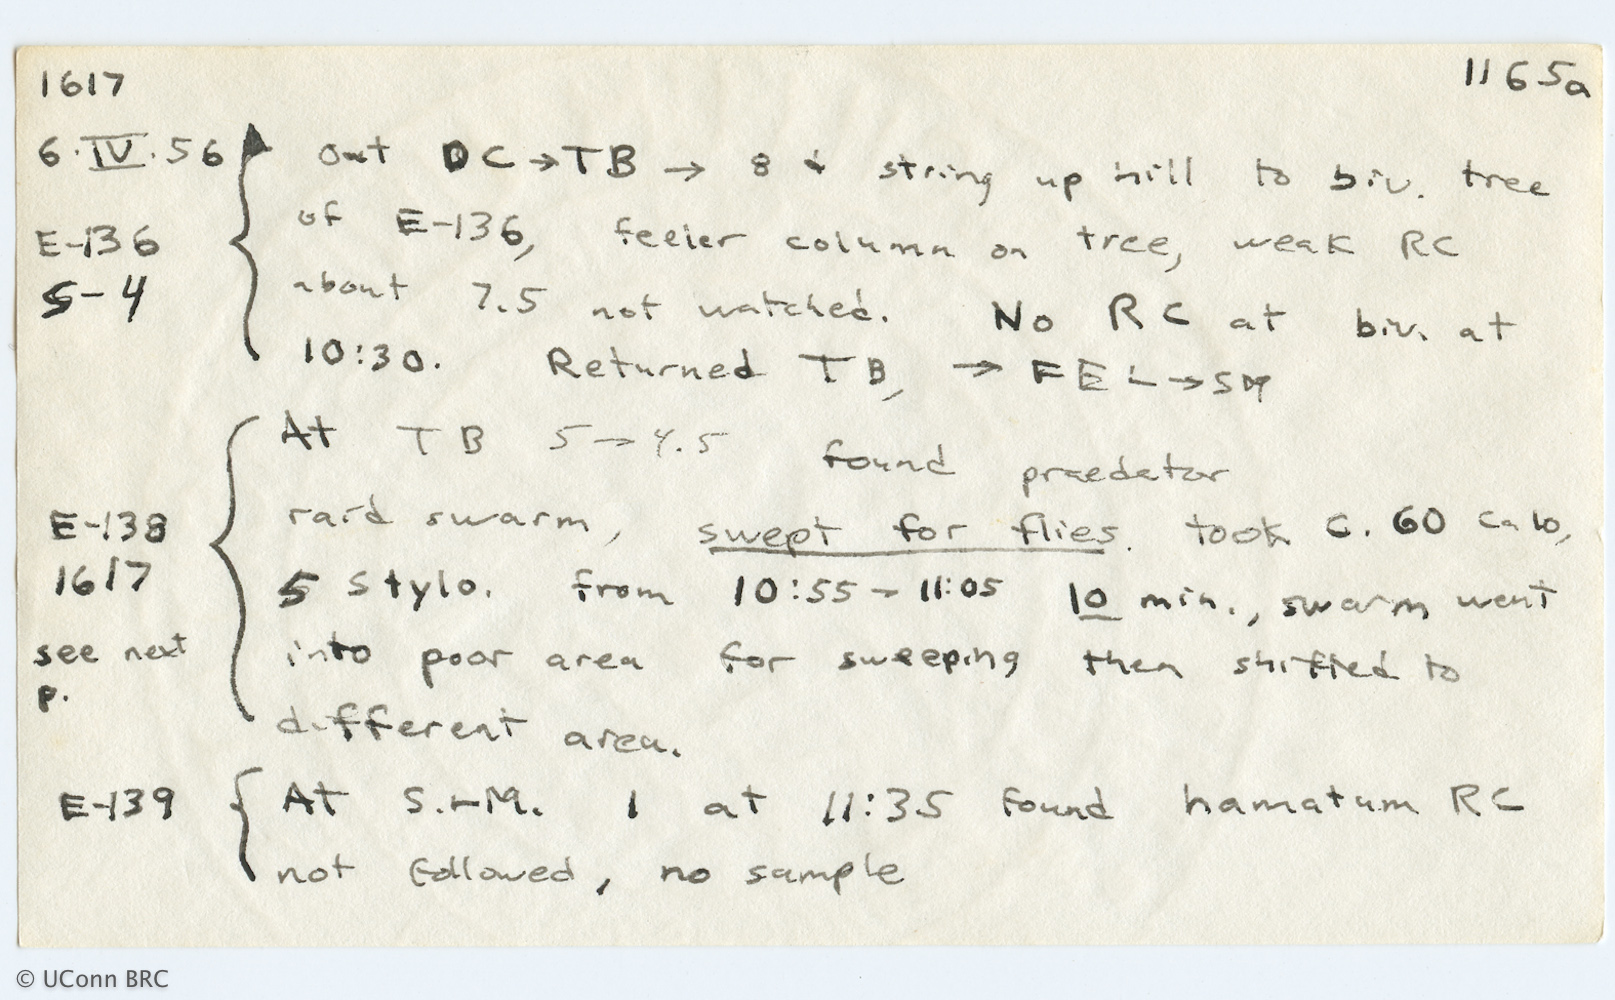 1617
1165a
6.IV.56 out DC→TB → 8 & string up hill to biv. tree
E-136 of E-136, feeler column on tree, weak RC
S-4 about 7.5 not watched. No RC at biv. at
10:30. Returned TB, → FEL→SM
At TB 5→4.5 found praedator
E-138 raid swarm, swept for flies. took c. 60 Calo,
1617 5 Stylo. from 10:55 - 11:05 10 min., swarm went
see next into poor area for sweeping then shifted to
p. different area.
E-139 At 1 at 11:35 found hamatum RC
not followed, no sample
© UConn BRC